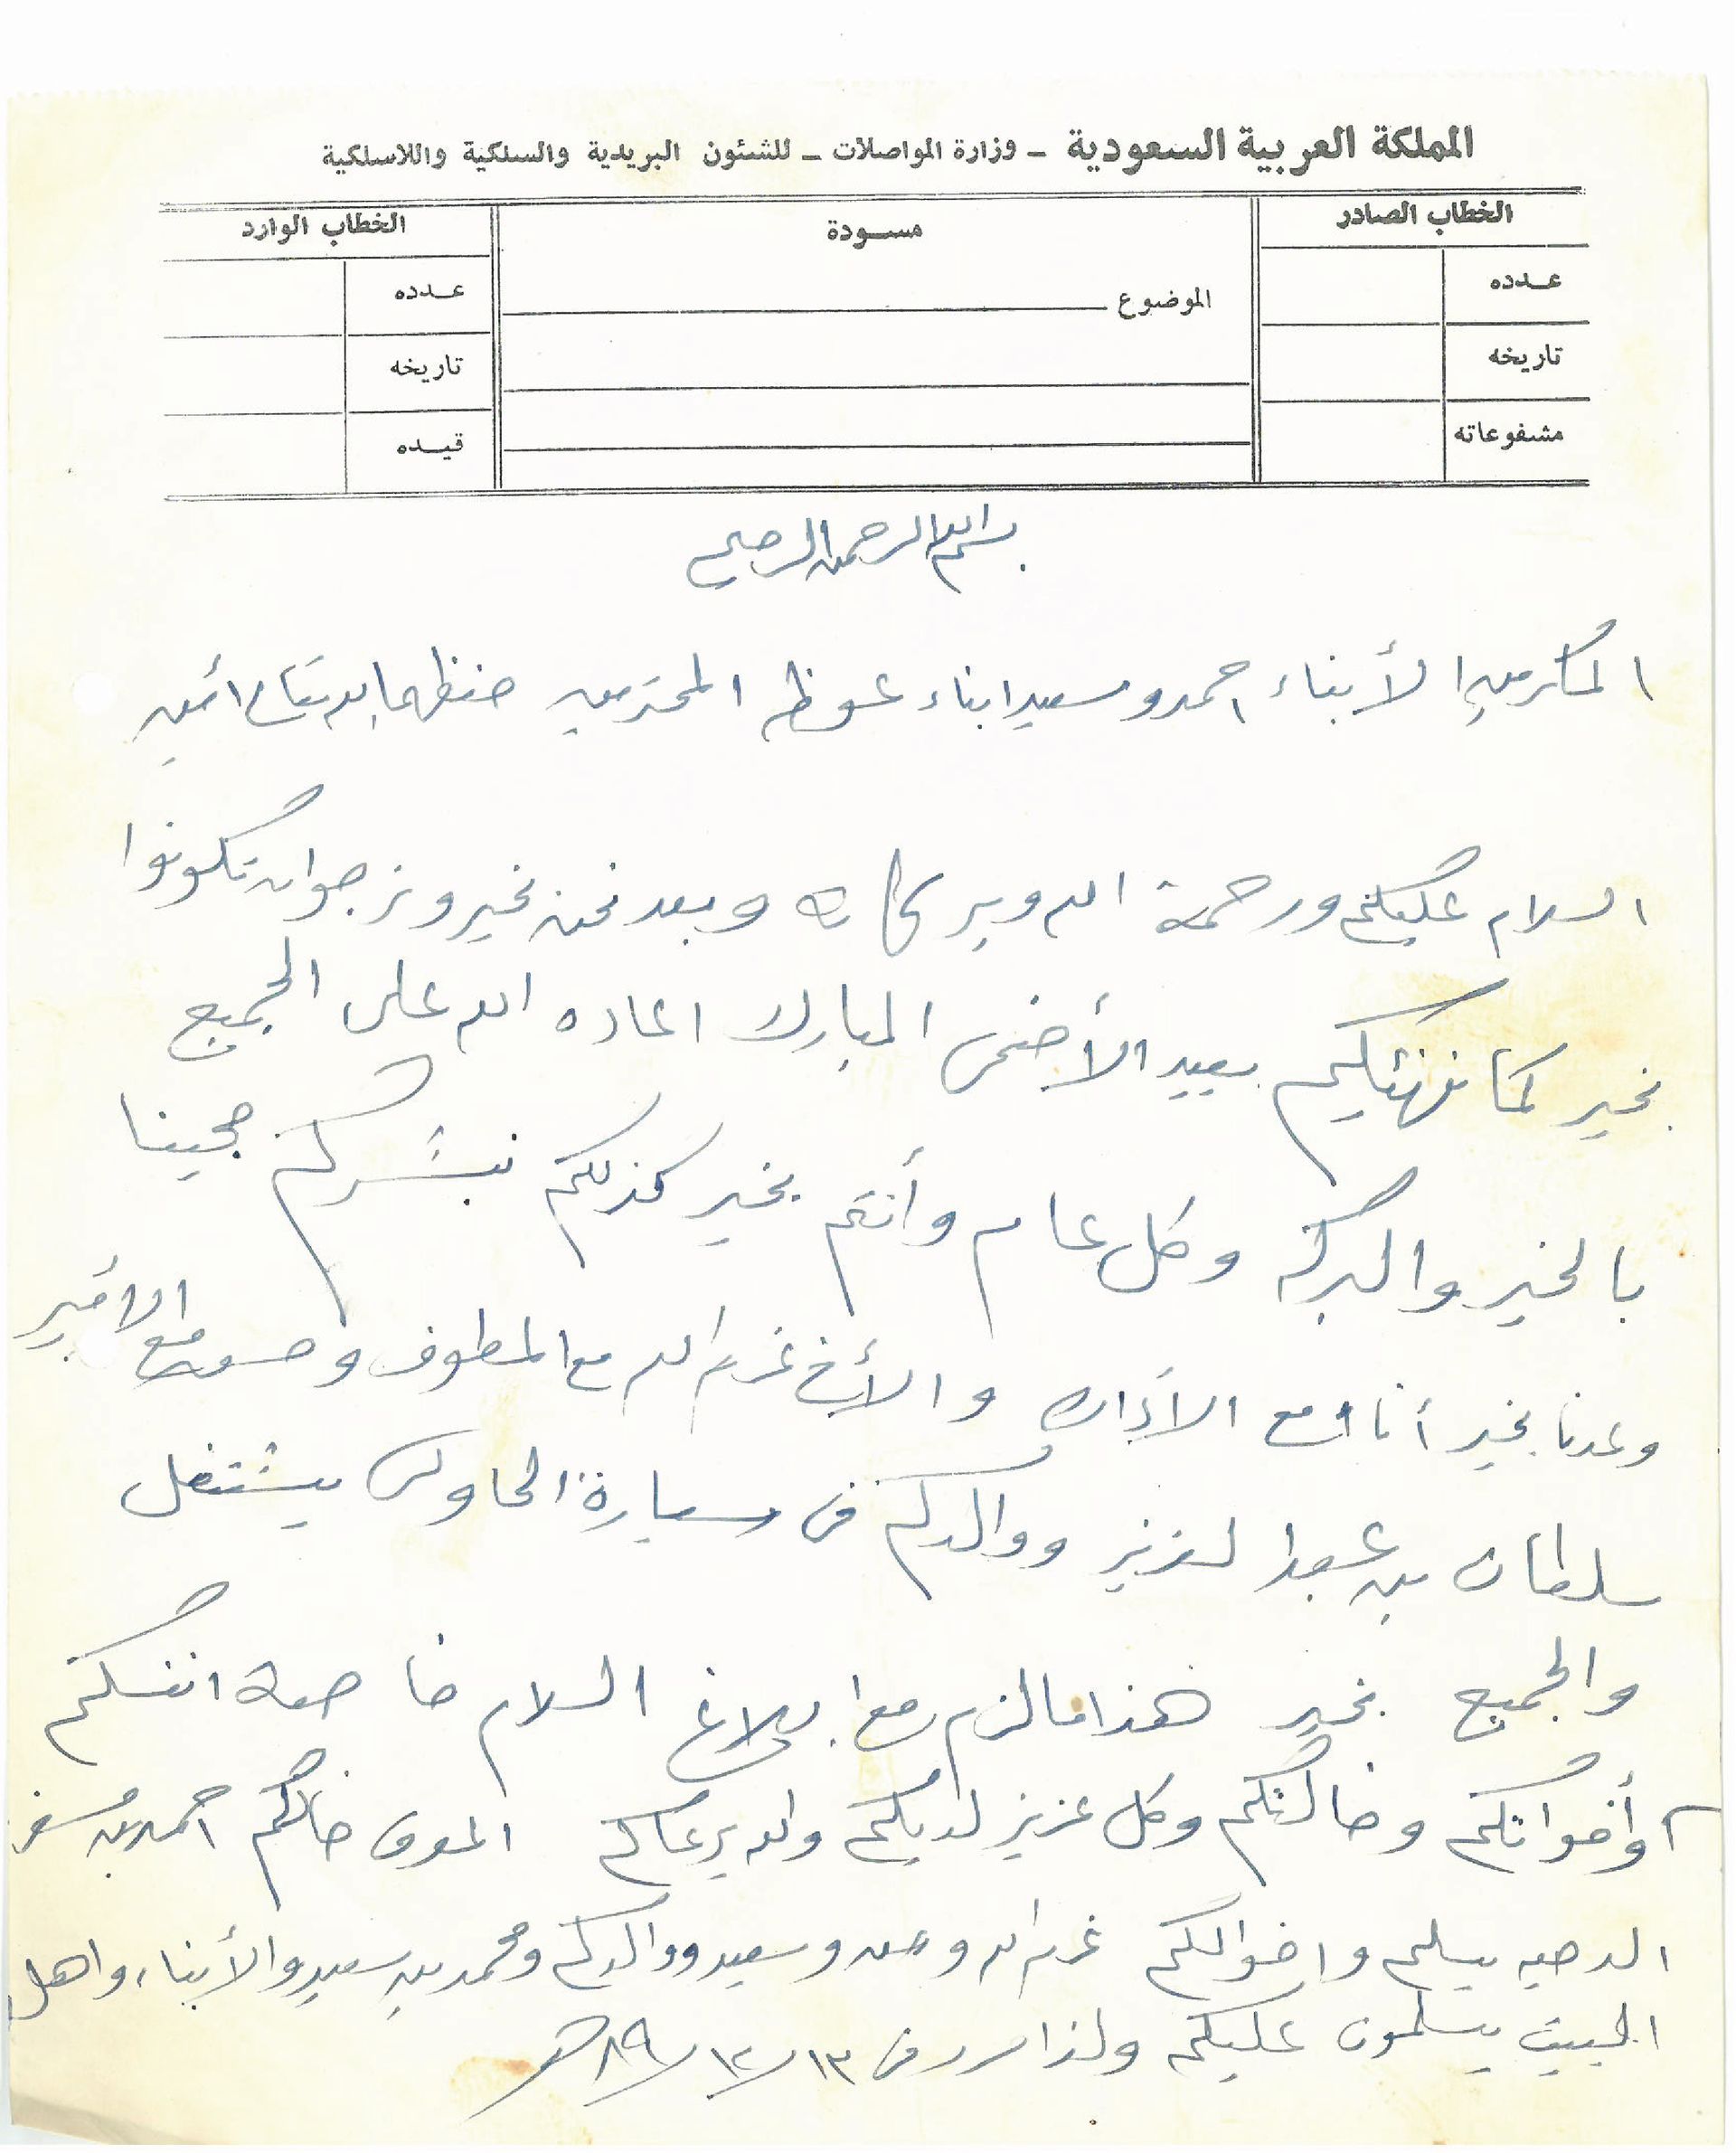 المملكة العربية السعودية - وزارة المواصلات - للشئون البريدية والسلكية واللاسلكية
الخطاب الصادر
عدده
تاريخه
مشفوعاته
مسودة
الموضوع
الخطاب الوارد
عدده
تاريخه
قيده
بسم الله الرحمن الرحيم
المكرمين الأبناء احمد وسعيد ابناء عوظه المحترمين حفظهما الله تعالى آمين
السلام عليكم ورحمة الله وبركاته وبعد نحن بخير ونرجوا ان تكونوا
بخير كما نهنئكم بعيد الأضحى المبارك اعاده الله على الجميع
بالخير والبركه وكل عام وأنتم بخير كذلكم نبشركم حجينا
وعدنا بخير أنا مع الأداره والأخ غرم الله مع المطوف وحسن مع الأمير
سلطان بن عبد العزيز ووالدكم في سيارة الحاولي يشتغل
والجميع بخير هذا ما لزم مع ابلاغ السلام خاصة انفسكم
وأخوانكم وخالتكم وكل عزيز لديكم والله يرعاكم خالكم احمد بن مسفر
يسلم واخوالكم غرم الله وحسن وسعيد ووالدكم ومحمد بن سعيد والأبناء واهل
البيت يسلمون عليكم ولذا حرر في ١٣/١٢/٨٩هـ